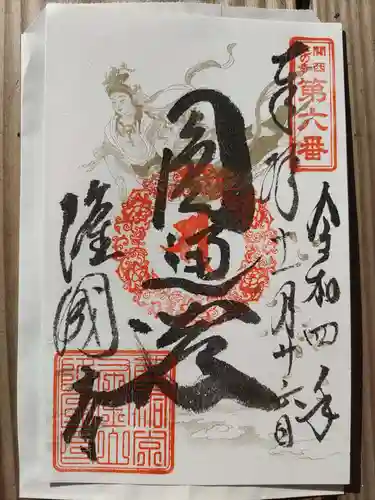 関西
花の寺
第六番
奉拝
令和四年
十一月廿
日
圓通
隆國寺